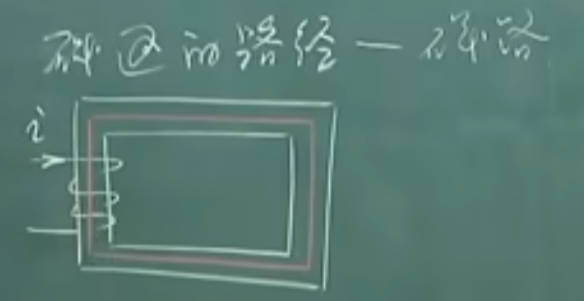 磁通的路径一磁路
i